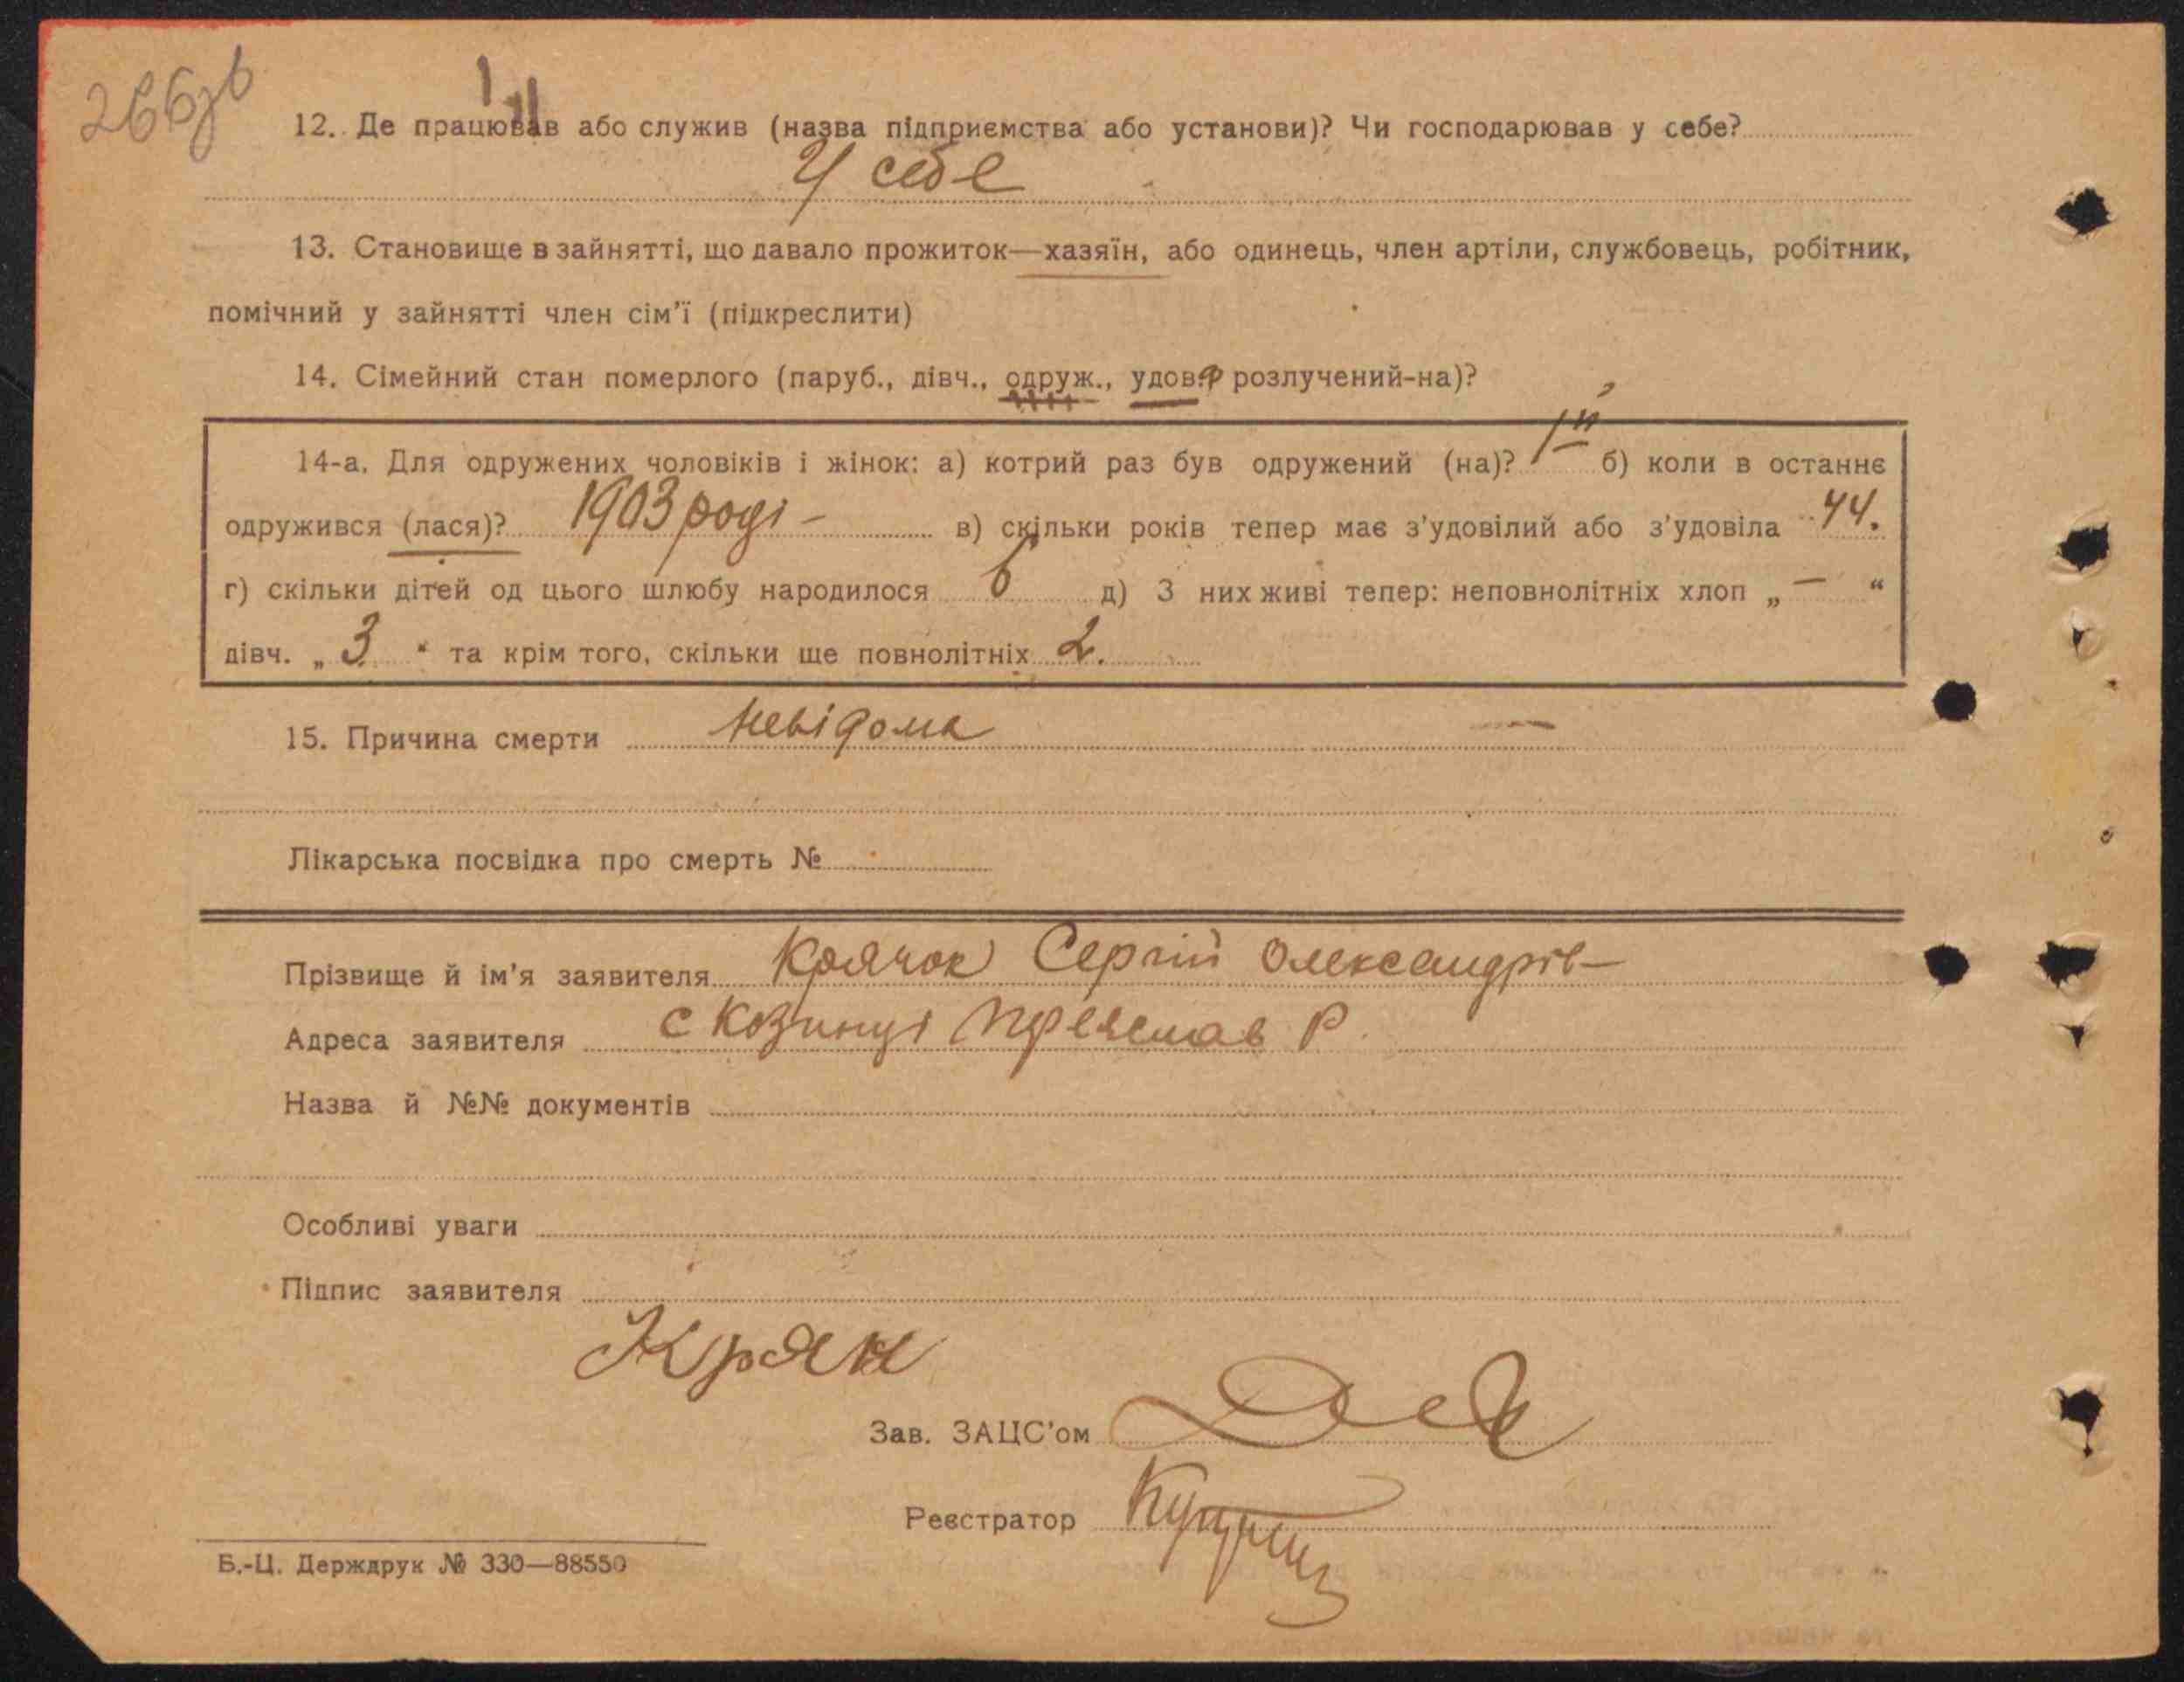 266зв
12. Де працював або служив (назва підприємства або установи)? Чи господарював у себе?
У себе
13. Становище в зайнятті, що давало прожиток—хазяїн, або одинець, член артіли, службовець, робітник,
помічний у зайнятті член сім'ї (підкреслити)
14. Сімейний стан померлого (паруб., дівч., одруж., удов., розлучений-на)?
14-а. Для одружених чоловіків і жінок: а) котрий раз був одружений (на)? І й б) коли в останнє
одружився (лася)? 1903 році – в) скільки років тепер має з'удовілий або з'удовіла 44.
г) скільки дітей од цього шлюбу народилося 6 д) З них живі тепер: неповнолітніх хлоп „ — “
дівч. „ 3 “ та крім того, скільки ще повнолітніх 2.
15. Причина смерти невідома —
Лікарська посвідка про смерть №
Прізвище й ім'я заявителя Крячок Сергій Олександрів—
Адреса заявителя с Козинці Переяслав Р.
Назва й №№ документів
Особливі уваги
Підпис заявителя
Зав. ЗАЦС'ом
Реєстратор
Б.-Ц. Держдрук № 330—88550